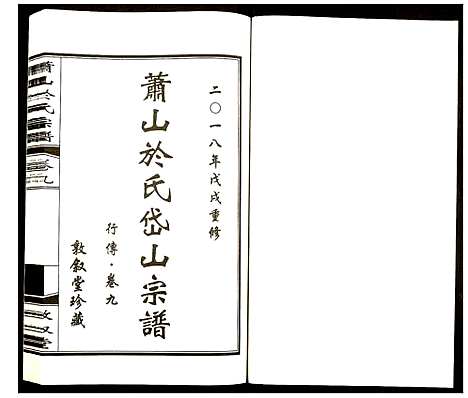 二〇一八年戊戌重修
蕭山於氏岱山宗譜
行傳·卷九
敦叙堂珍藏
蕭山於氏宗譜
卷九
敦叙堂